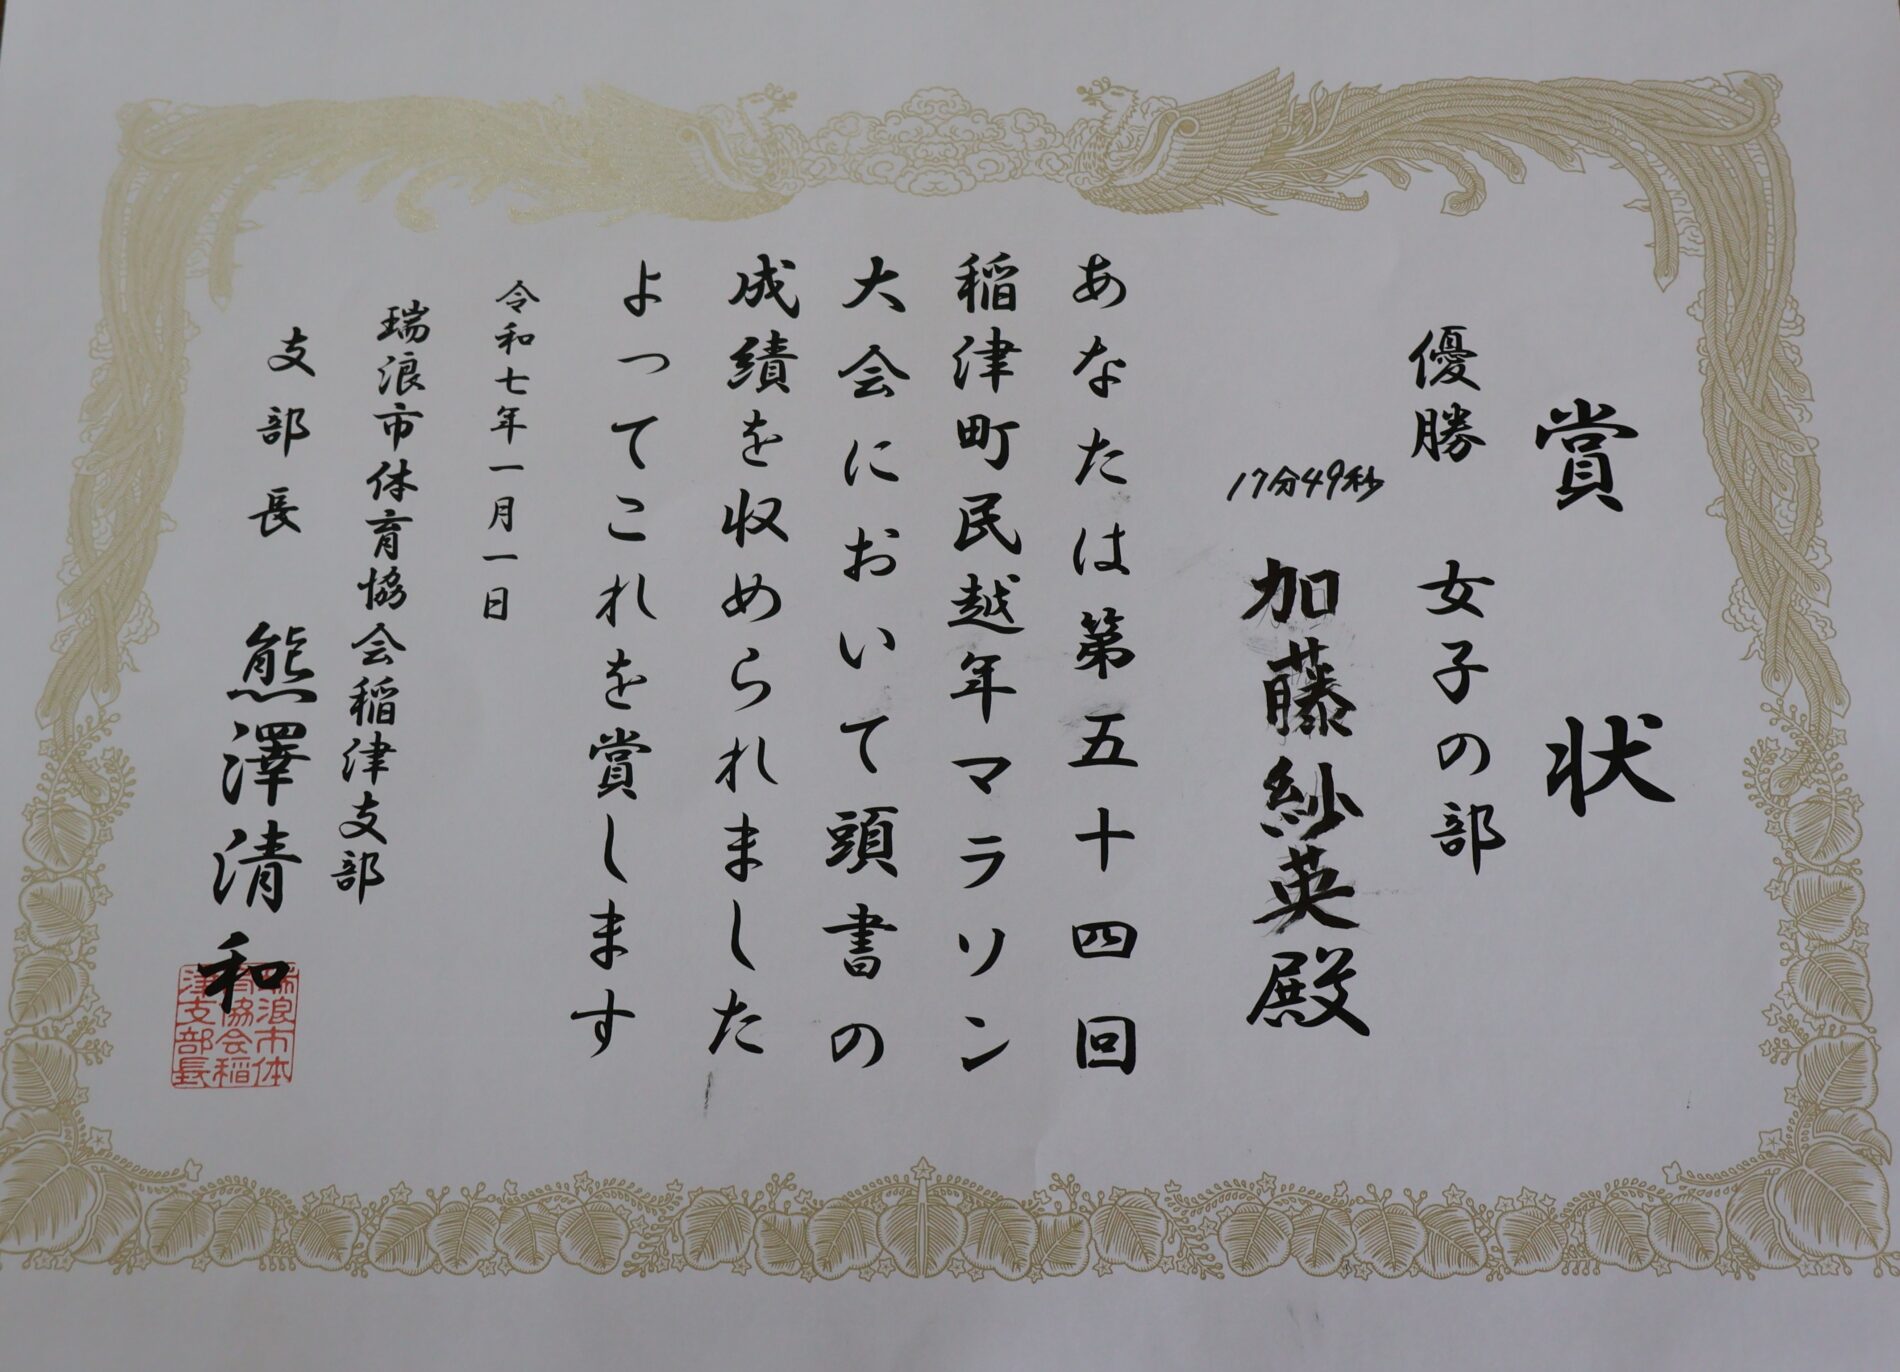 賞状
優勝 女子の部
17分49秒
加藤紗英殿
あなたは第五十四回
稲津町民越年マラソン
大会において頭書の
成績を収められました
よってこれを賞します
令和七年一月一日
瑞浪市体育協会稲津支部
支部長 熊澤清和
瑞浪市体
育協会稲
津支部長